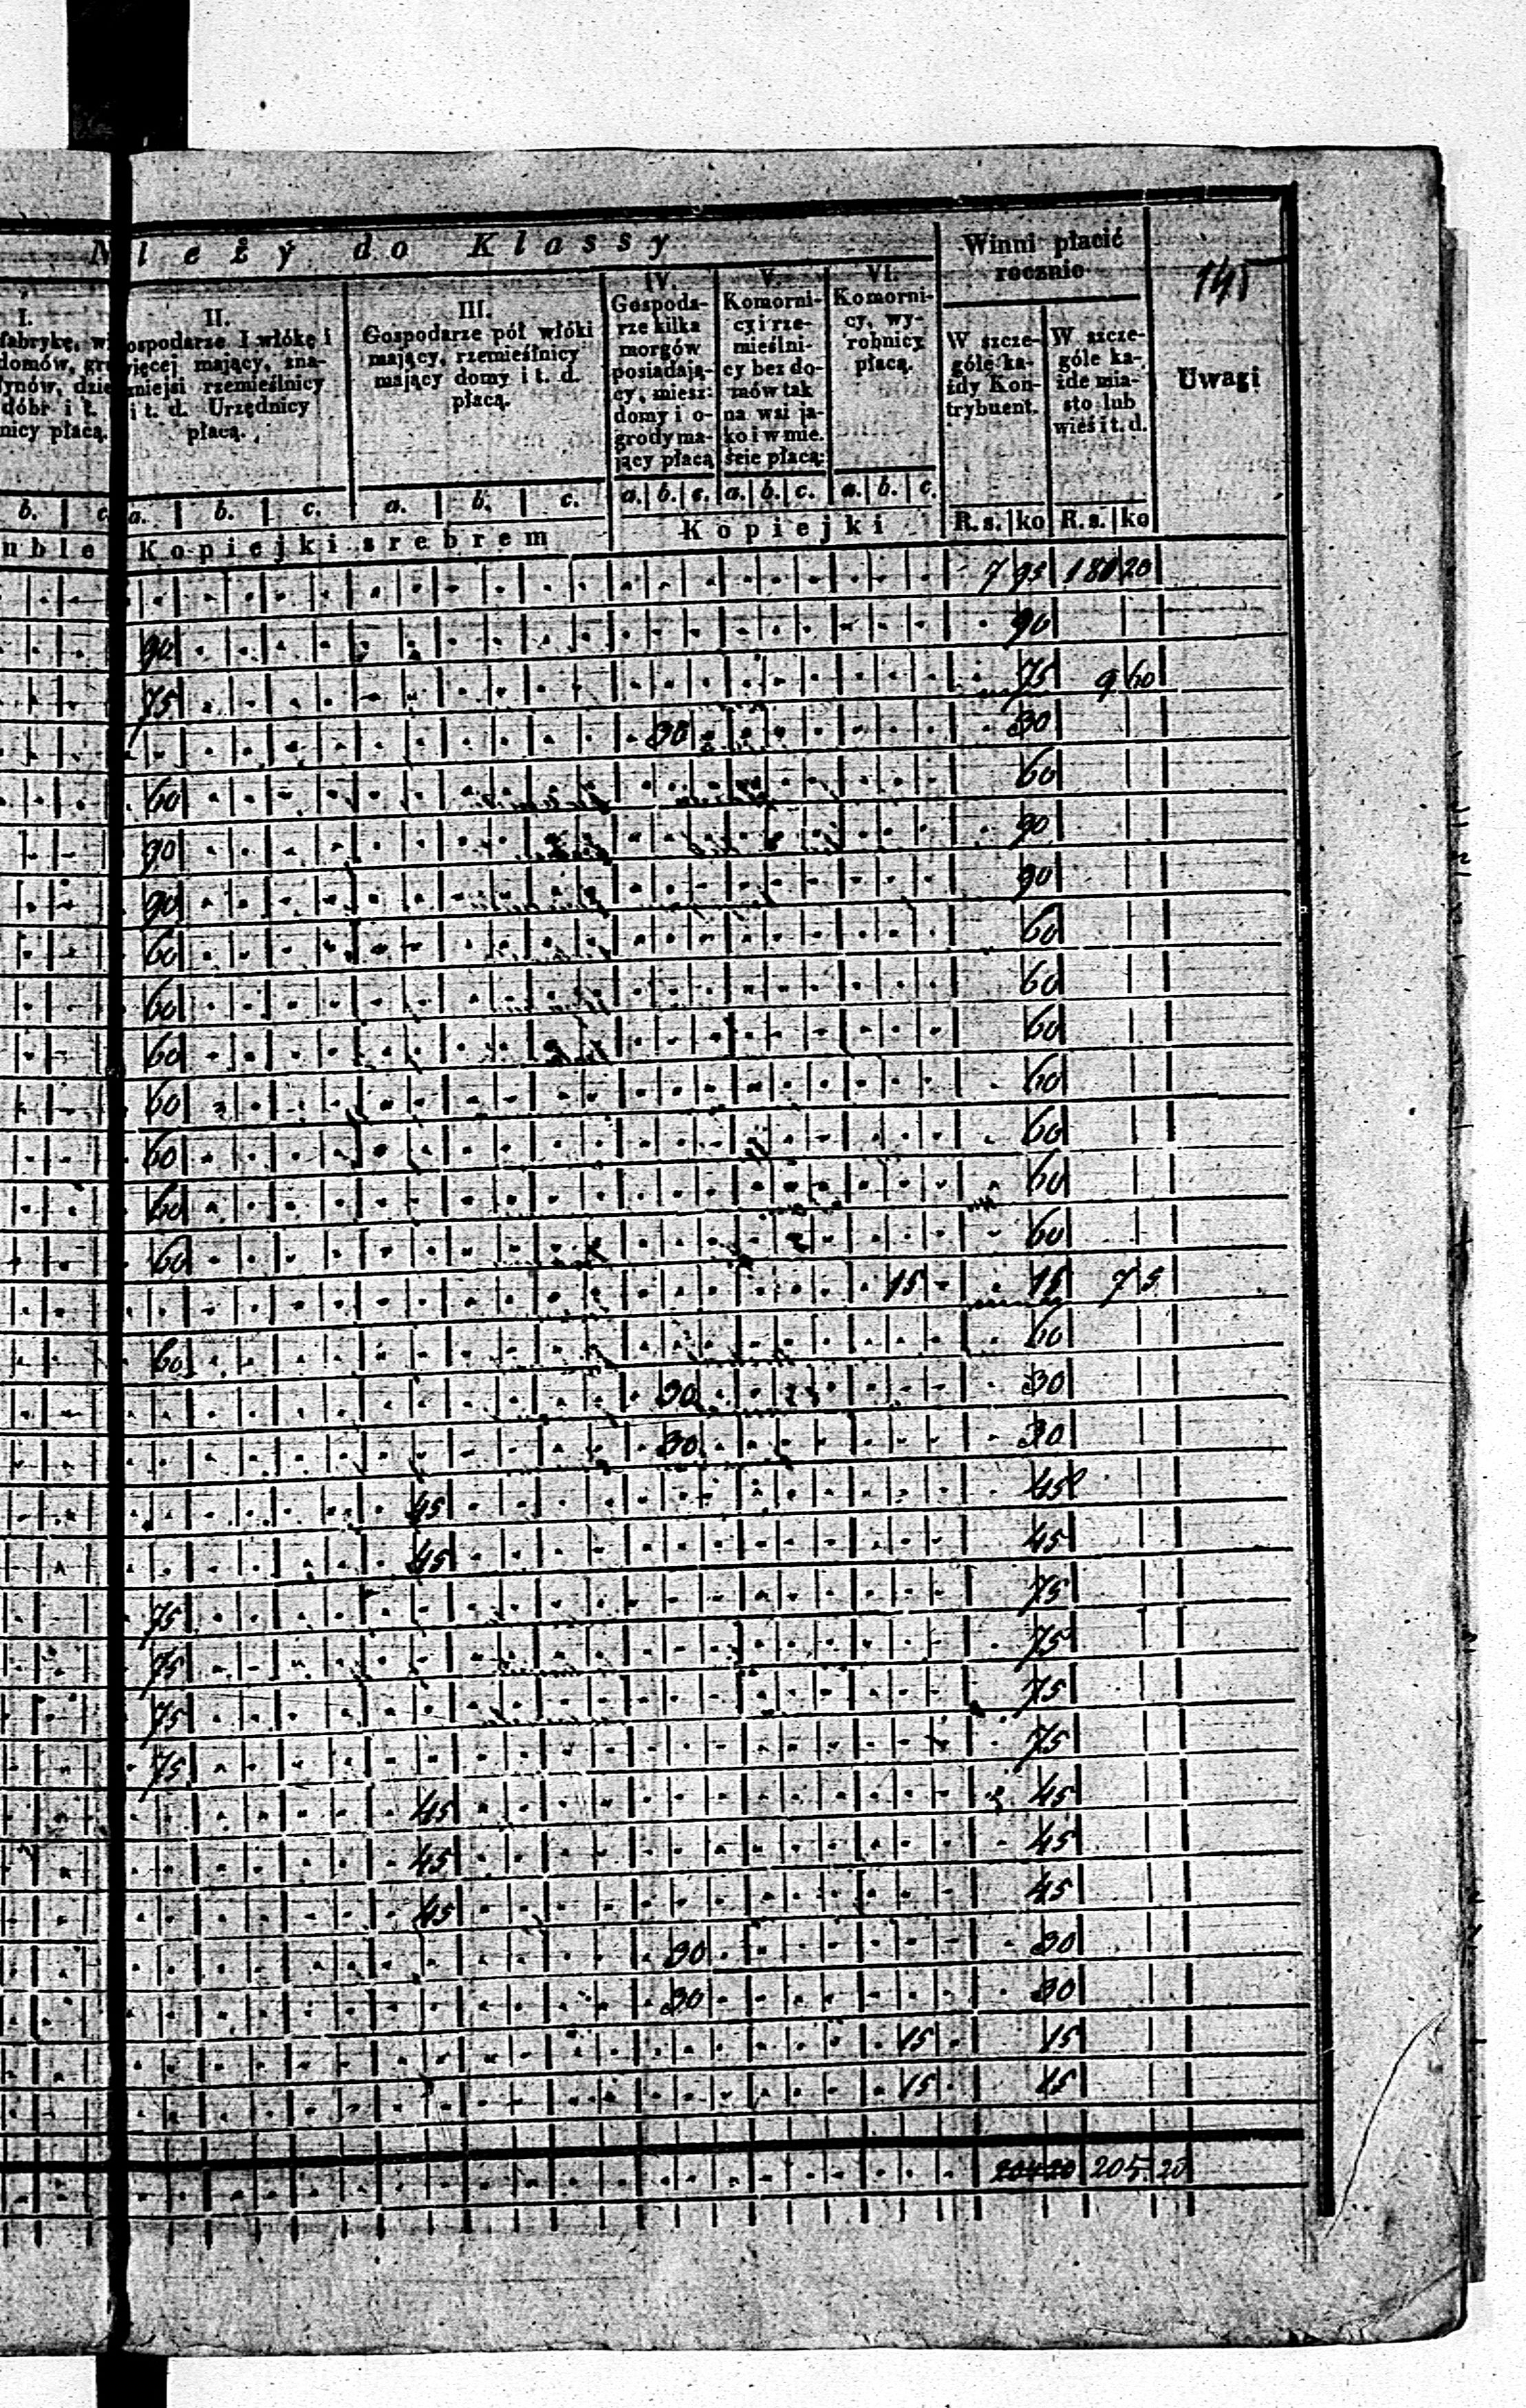 leży do Klassy
Winni płacić
rocznie
145
I.
fabrykę, w
domów, gr
ynów, dzie
dóbr i t.
nicy płacą.
II.
ospodarze I włókę i
ięcej mający, zna-
zniejsi rzemieślnicy
i t. d. Urzędnicy
płacą.
III.
Gospodarze pół włóki
mający, rzemieślnicy
mający domy i t. d.
płacą.
IV.
Gospoda-
rze kilka
morgów
posiadają-
cy, miesz:
domy i o-
grody ma-
jący płacą
V.
Komorni-
cy i rze-
mieślni-
cy bez do-
mów tak
na wsi ja-
ko i w mie.
ście płacą:
VI.
Komorni-
cy, wy-
robnicy
płacą.
W szcze-
góle ka-
żdy Kon-
trybuent.
W szcze-
góle ka-
żde mia-
sto lub
wieś i t. d.
Uwagi
b. c a. b. c. a. b. c. a. b. c. a. b. c. a. b. c.
uble Kopiejki srebrem Kopiejki R. s. ko R. s. ko
7 95 180 20
90 90
75 75 9 60
30 30
60 60
90 90
90 90
60 60
60 60
60 60
60 60
60 60
60 60
60 60
15 15 7 5
60 60
30 30
30 30
45 45
45 45
75 75
75 75
75 75
75 75
45 45
45 45
45 45
30 30
30 30
15 15
15 15
205 20